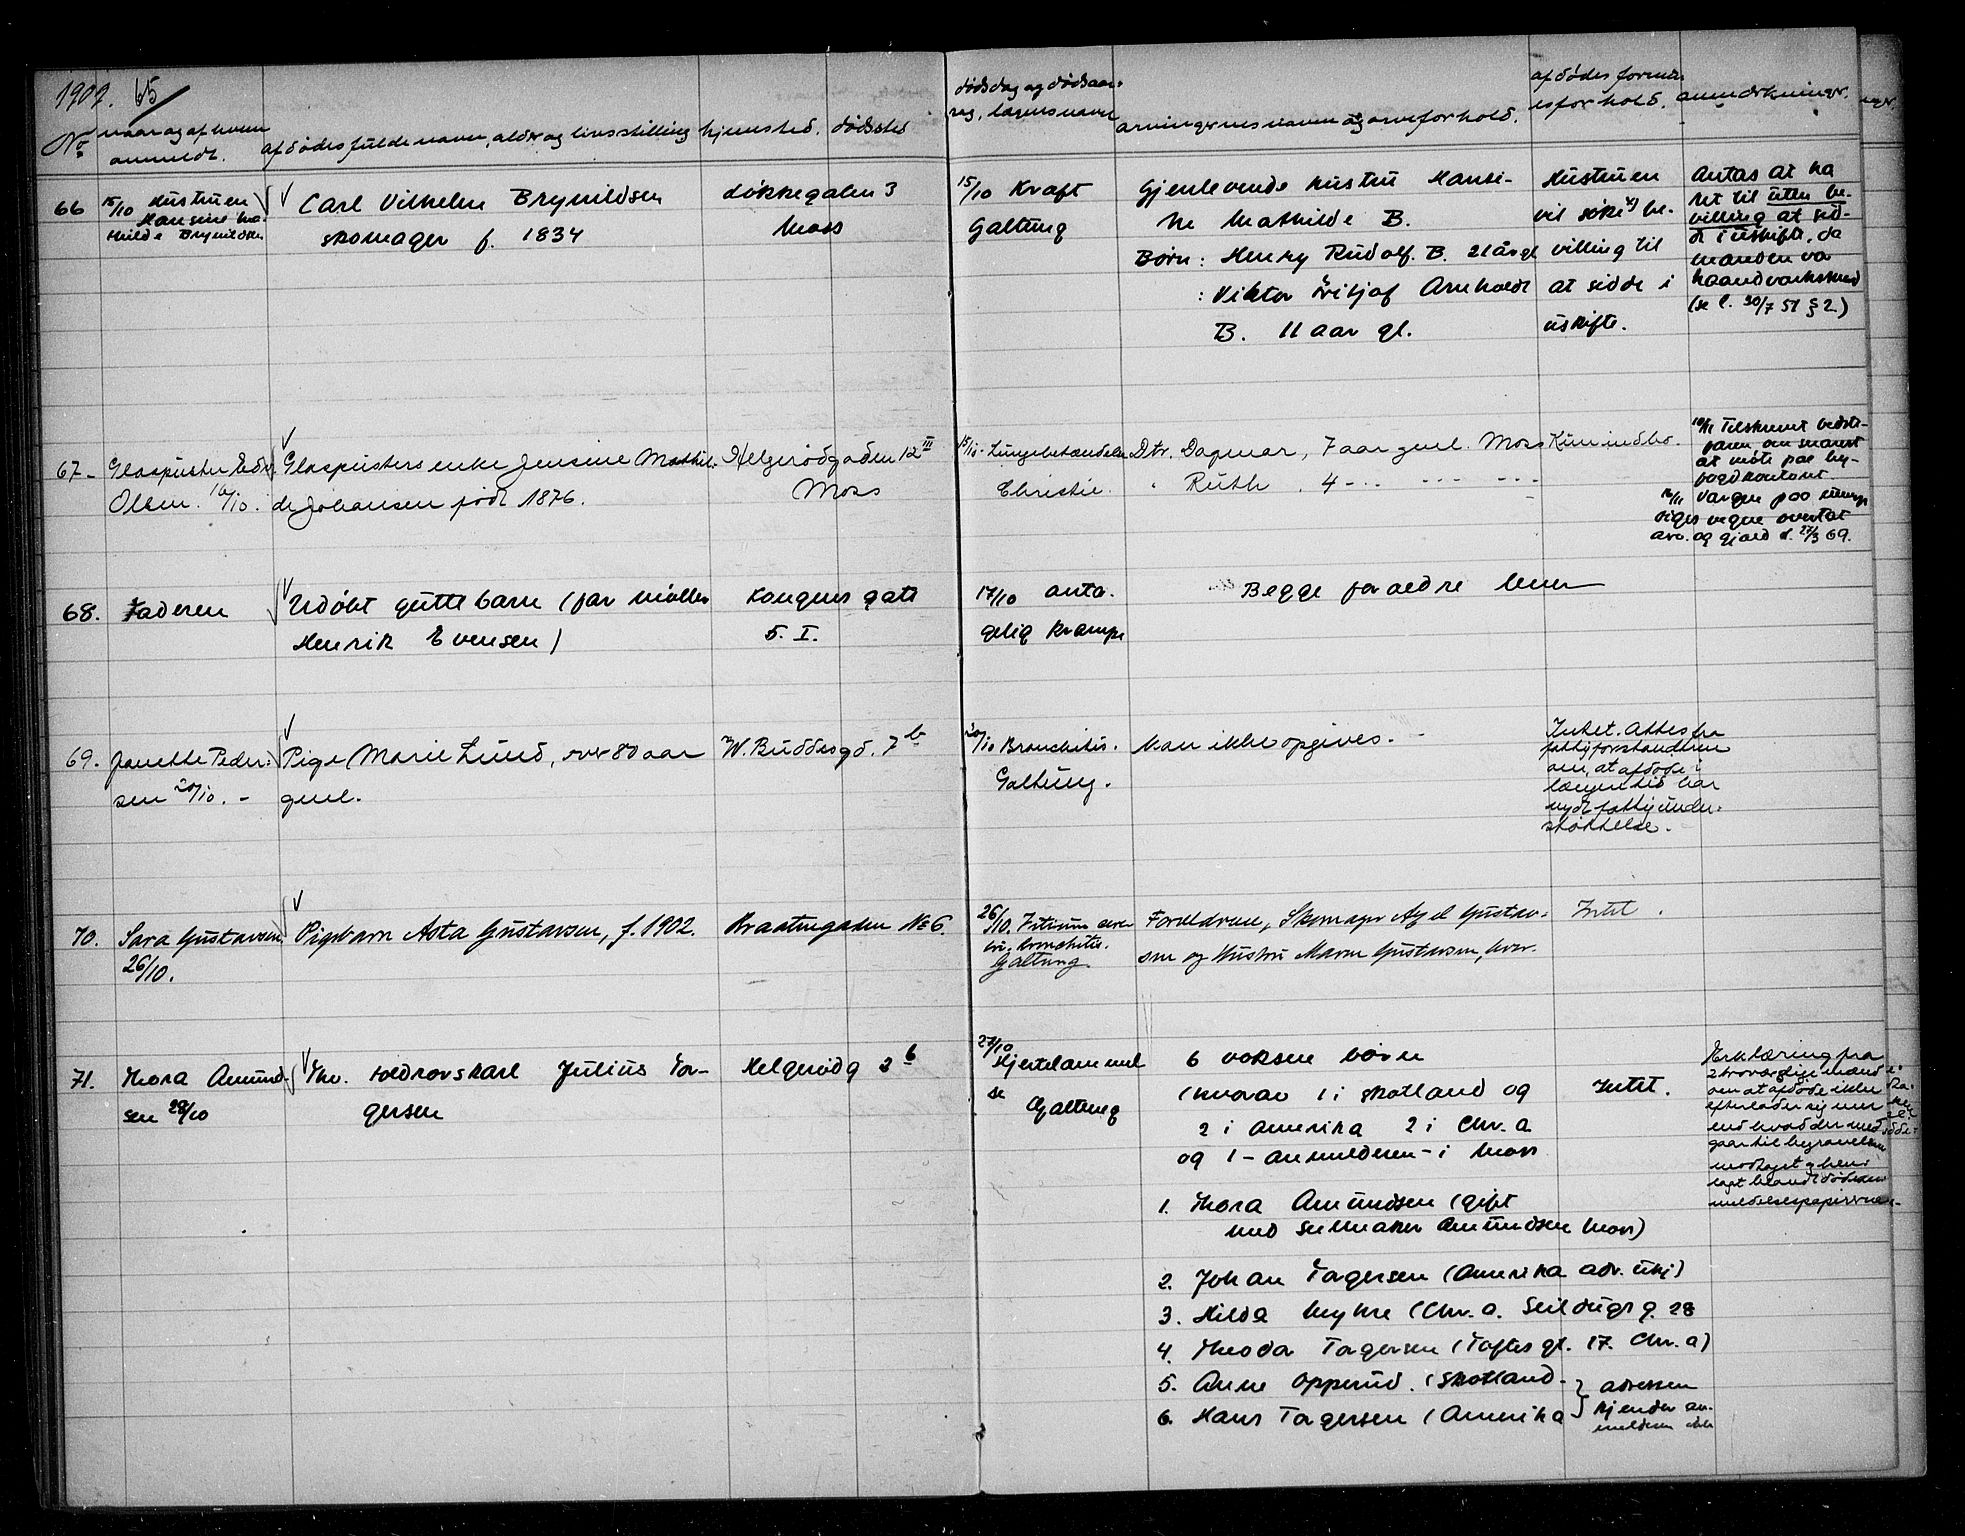 1909. 65
No
naar og af hvem
anmeldt.
afdødes fulde navn, alder og livsstilling
hjemsted.
dødssted
dødsdag og dødsaar-
sag, lægens navn
arvingernes navn og arveforhold.
afdødes formu-
esforhold.
anmerkninger.
66
15/10 Hustruen
Hansine Ma-
thilde Brynildsen
Carl Vilhelm Brynildsen
skomager f. 1834
Løkkegaten 3
Moss
15/10 Kraft
Galtung
Gjenlevende hustru Hansi-
ne Mathilde B.
Børn: Henry Rudolf. B. 21 år gl
: Viktor Fritjof Arnholdt
B. 11 aar gl.
Hustruen
vil søke be-
villing til
at sidde i
uskifte.
Antas at ha
ret til uten be-
villing at sid-
de i uskifte, da
manden var
haandverksmed
(se l. 30/7 51 § 2)
67-
Glaspuster Edv.
Olsen. 16/10.
Glaspusters enke Jensine Mathil-
de Johansen født 1876.
Helgerødgaden 12 III
Moss
15/10. Lungebetændelse
Christie.
Dtr. Dagmar, 7 aar gml. Moss
" Ruth, 4 - .. - .. - ..
Kun indbo.
Tilskrevet bedste-
faren om snarest
at møte paa by-
fogdkontoret.
16/11 Vergen paa umyn-
diges vegne overtat
arv. og gjæld d. 27/3 69.
68.
Faderen
Udøbt guttebarn (far møller
Henrik Evensen)
Kongens gate
5. I.
17/10 anta-
gelig krampe
Begge forældre lever
69.
Janette Peder-
sen 20/10. -
Pige Marie Lund, over 80 aar
gml.
W. Buddesgd. 7 b
20/10 Bronchitis.
Galtung.
kan ikke opgives.
Intet. Attest fra
fattigforstanderen
om, at afdøde i
længere tid har
nydt fattigunder-
støttelse.
70.
Sara Gustavsen
26/10.
Pigebarn Asta Gustavsen, f. 1902.
Kraatengaden No 6.
26/10. Vitium cor-
bronchitis.
Galtung.
Forældrene, Skomager Axel Gustav-
sen og Hustru Maren Gustavsen, lever.
Intet.
71.
Thora Amund-
sen 28/10
Fhv. toldrorskarl Julius Tor-
gersen
Helgerødg 2 b
27/10
Hjertelammel
se
Galtung
6 voksne børn
(hvorav 1 i Skotland og
2 i Amerika 2 i Chr.a
og 1 - anmelderen - i Moss
1. Thora Amundsen (gift
med Seilmaker Amundsen Moss)
2. Johan Torgersen (Amerika adr. ukj)
3. Hilda Myhre (Chr.a. Seildugsg. 28
4. Theodor Torgersen (Toftes gt. 17. Chr.a)
5. Anne Opperud. (Skotland-
6. Hans Torgersen (Amerika
} adressen
kjender an-
melderen ikke
Intet.
Erklæring fra
2 troværdige mænd
om at afdøde ikke
efterlader sig mer
end hvad der med-
gaar til begravelsen
modtaget og hen-
lagt blandt dødsan-
meldelsespapirerne.